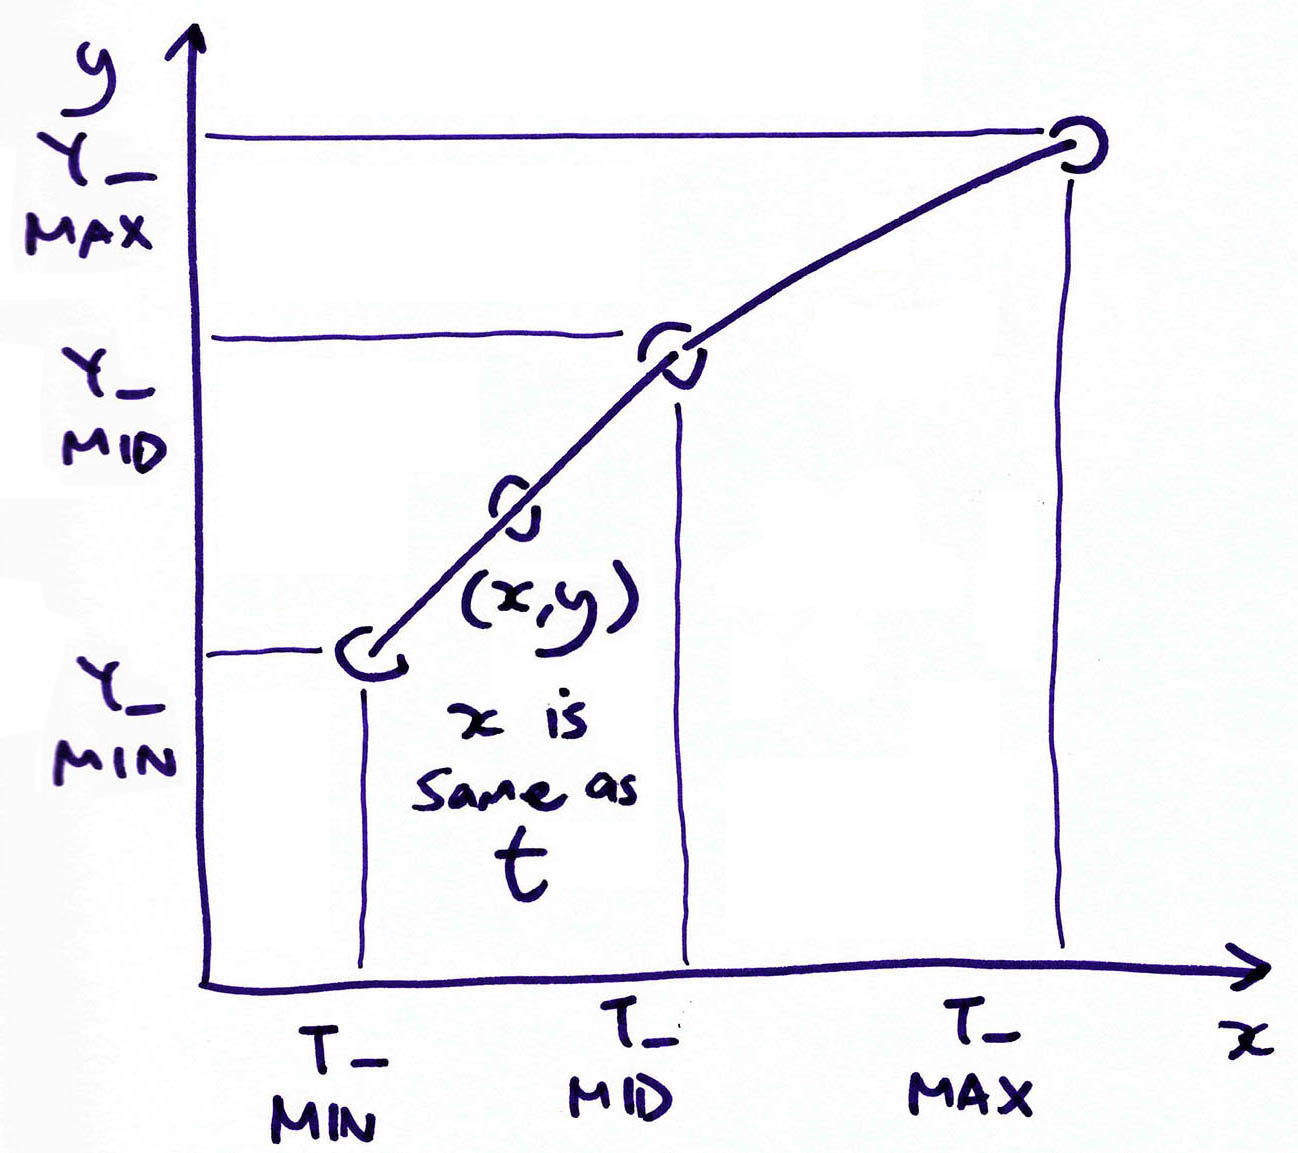 y
Y_
MAX
Y_
MID
(x,y)
Y_
MIN
x is
same as
t
T_
MIN
T_
MID
T_
MAX
x